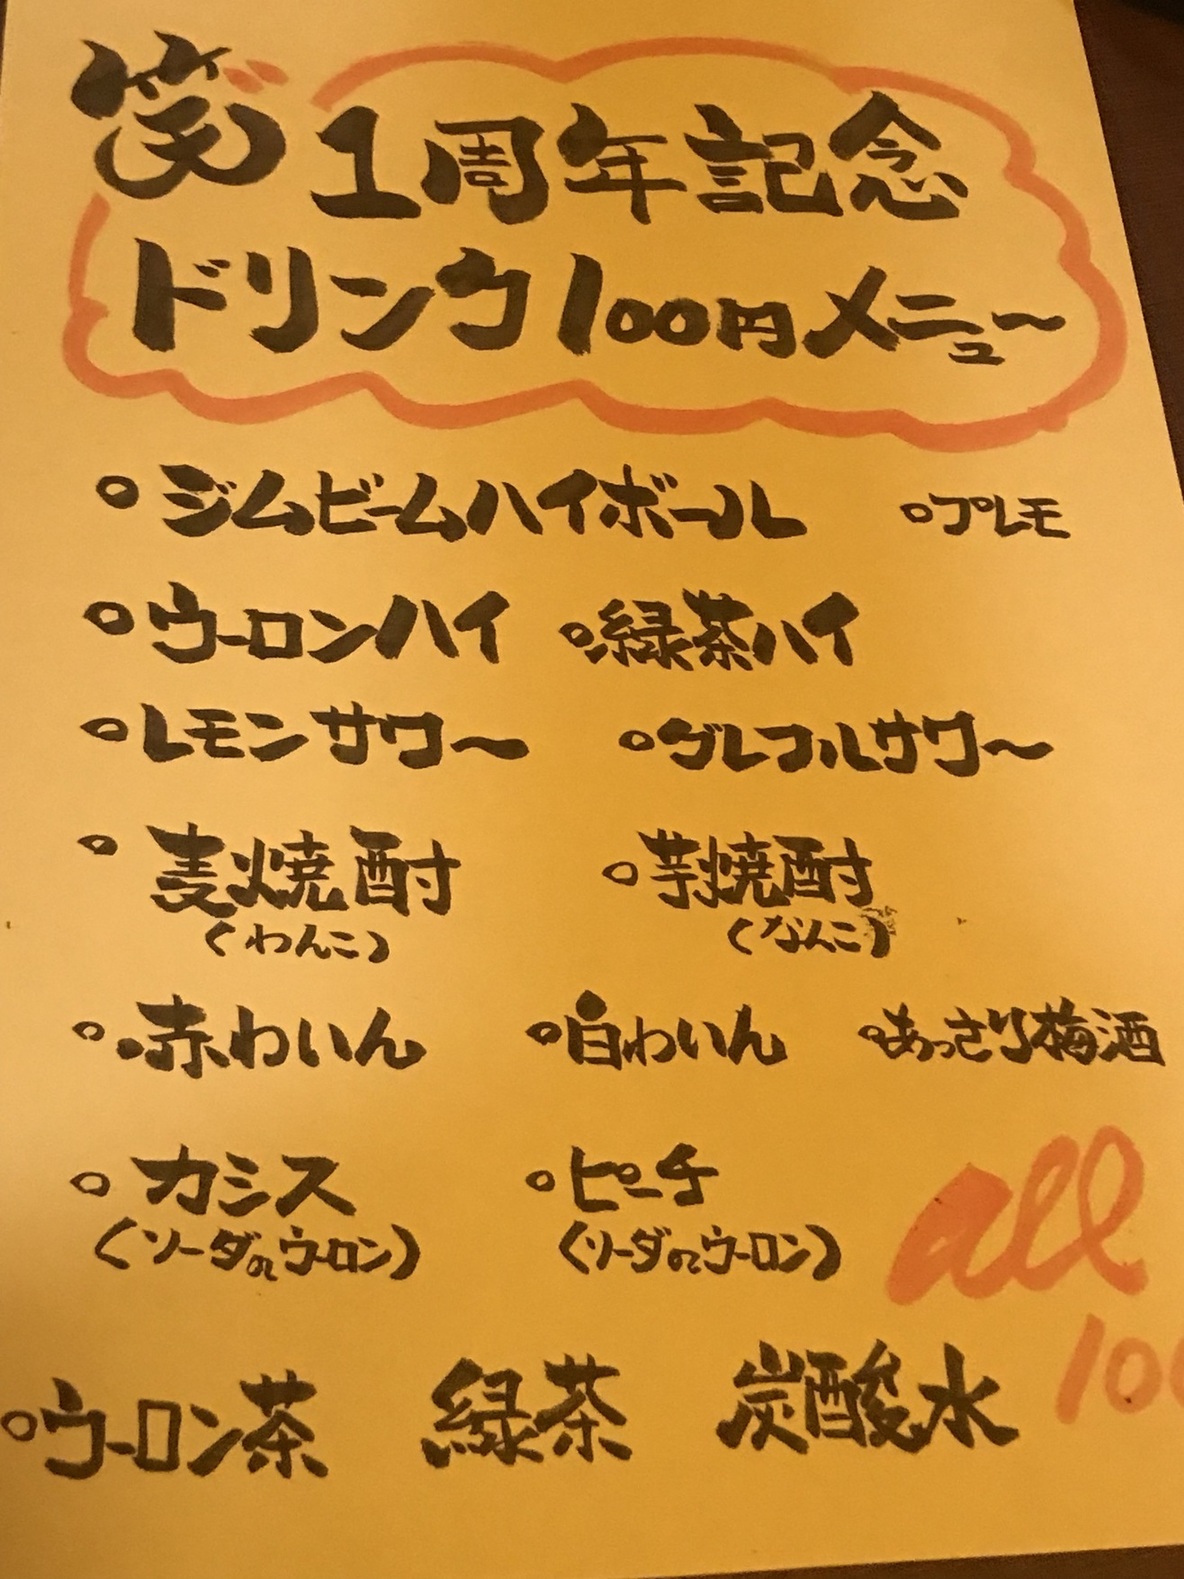 笑 1周年記念
ドリンク100円メニュー
○ジムビームハイボール ○プレモ
○ウーロンハイ ○緑茶ハイ
○レモンサワー ○グレフルサワー
○麦焼酎 ○芋焼酎
(わんこ) (なんこ)
○赤わいん ○白わいん ○あっさり梅酒
○カシス ○ピーチ
(ソーダorウーロン) (ソーダorウーロン)
all
100
○ウーロン茶 緑茶 炭酸水